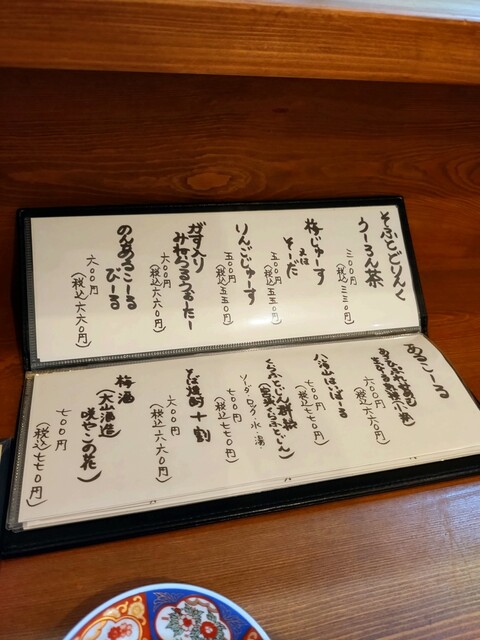 そふとどりんく
うーろん茶
三〇〇円
(税込三三〇円)
梅じゅーす
又は
そーだ
五〇〇円
(税込五五〇円)
りんごじゅーす
五〇〇円
(税込五五〇円)
がす入り
みねらるうぉーたー
六〇〇円
(税込六六〇円)
のんあるこーる
びーる
六〇〇円
(税込六六〇円)
あるこーる
生びーる
六〇〇円
(税込六六〇円)
八海山はいぼーる
七〇〇円
(税込七七〇円)
くらふとじん
ソーダ・ロック・水・湯
七〇〇円
(税込七七〇円)
そば焼酎 十割
六〇〇円
(税込六六〇円)
梅酒
(大山酒造
咲やこの花)
七〇〇円
(税込七七〇円)